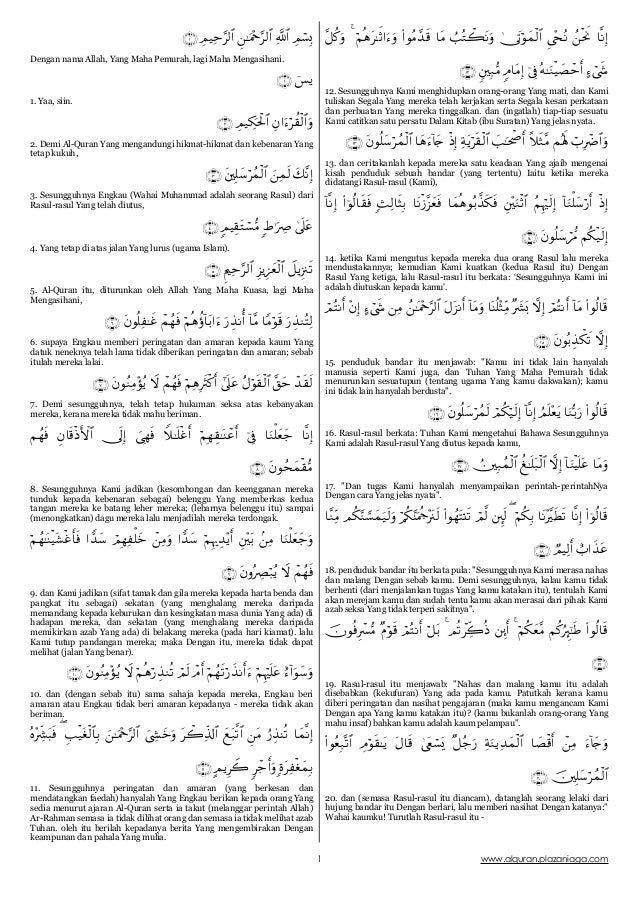 بِسْمِ ٱللَّهِ ٱلرَّحْمَٰنِ ٱلرَّحِيمِ ﴿١﴾
Dengan nama Allah, Yang Maha Pemurah, lagi Maha Mengasihani.
يسٓ ﴿١﴾
1. Yaa, siin.
وَٱلْقُرْءَانِ ٱلْحَكِيمِ ﴿٢﴾
2. Demi Al-Quran Yang mengandungi hikmat-hikmat dan kebenaran Yang
tetap kukuh,
إِنَّكَ لَمِنَ ٱلْمُرْسَلِينَ ﴿٣﴾
3. Sesungguhnya Engkau (Wahai Muhammad adalah seorang Rasul) dari
Rasul-rasul Yang telah diutus,
عَلَىٰ صِرَٰطٍ مُّسْتَقِيمٍ ﴿٤﴾
4. Yang tetap di atas jalan Yang lurus (ugama Islam).
تَنزِيلَ ٱلْعَزِيزِ ٱلرَّحِيمِ ﴿٥﴾
5. Al-Quran itu, diturunkan oleh Allah Yang Maha Kuasa, lagi Maha
Mengasihani,
لِتُنذِرَ قَوْمًا مَّآ أُنذِرَ ءَابَآؤُهُمْ فَهُمْ غَٰفِلُونَ ﴿٦﴾
6. supaya Engkau memberi peringatan dan amaran kepada kaum Yang
datuk neneknya telah lama tidak diberikan peringatan dan amaran; sebab
itulah mereka lalai.
لَقَدْ حَقَّ ٱلْقَوْلُ عَلَىٰٓ أَكْثَرِهِمْ فَهُمْ لَا يُؤْمِنُونَ ﴿٧﴾
7. Demi sesungguhnya, telah tetap hukuman seksa atas kebanyakan
mereka, kerana mereka tidak mahu beriman.
إِنَّا جَعَلْنَا فِىٓ أَعْنَٰقِهِمْ أَغْلَٰلًا فَهِىَ إِلَى ٱلْأَذْقَانِ فَهُم
مُّقْمَحُونَ ﴿٨﴾
8. Sesungguhnya Kami jadikan (kesombongan dan keengganan mereka
tunduk kepada kebenaran sebagai) belenggu Yang memberkas kedua
tangan mereka ke batang leher mereka; (lebarnya belenggu itu) sampai
(menongkatkan) dagu mereka lalu menjadilah mereka terdongak.
وَجَعَلْنَا مِنۢ بَيْنِ أَيْدِيهِمْ سَدًّا وَمِنْ خَلْفِهِمْ سَدًّا فَأَغْشَيْنَٰهُمْ
فَهُمْ لَا يُبْصِرُونَ ﴿٩﴾
9. dan Kami jadikan (sifat tamak dan gila mereka kepada harta benda dan
pangkat itu sebagai) sekatan (yang menghalang mereka daripada
memandang kepada keburukan dan kesingkatan masa dunia Yang ada) di
hadapan mereka, dan sekatan (yang menghalang mereka daripada
memikirkan azab Yang ada) di belakang mereka (pada hari kiamat). lalu
Kami tutup pandangan mereka; maka Dengan itu, mereka tidak dapat
melihat (jalan Yang benar).
وَسَوَآءٌ عَلَيْهِمْ ءَأَنذَرْتَهُمْ أَمْ لَمْ تُنذِرْهُمْ لَا يُؤْمِنُونَ ﴿١٠﴾
10. dan (dengan sebab itu) sama sahaja kepada mereka, Engkau beri
amaran atau Engkau tidak beri amaran kepadanya - mereka tidak akan
beriman.
إِنَّمَا تُنذِرُ مَنِ ٱتَّبَعَ ٱلذِّكْرَ وَخَشِىَ ٱلرَّحْمَٰنَ بِٱلْغَيْبِ ۖ فَبَشِّرْهُ
بِمَغْفِرَةٍ وَأَجْرٍ كَرِيمٍ ﴿١١﴾
11. Sesungguhnya peringatan dan amaran (yang berkesan dan
mendatangkan faedah) hanyalah Yang Engkau berikan kepada orang Yang
sedia menurut ajaran Al-Quran serta ia takut (melanggar perintah Allah)
Ar-Rahman semasa ia tidak dilihat orang dan semasa ia tidak melihat azab
Tuhan. oleh itu berilah kepadanya berita Yang mengembirakan Dengan
keampunan dan pahala Yang mulia.
إِنَّا نَحْنُ نُحْىِ ٱلْمَوْتَىٰ وَنَكْتُبُ مَا قَدَّمُوا۟ وَءَاثَٰرَهُمْ ۚ وَكُلَّ
شَىْءٍ أَحْصَيْنَٰهُ فِىٓ إِمَامٍ مُّبِينٍ ﴿١٢﴾
12. Sesungguhnya Kami menghidupkan orang-orang Yang mati, dan Kami
tuliskan Segala Yang mereka telah kerjakan serta Segala kesan perkataan
dan perbuatan Yang mereka tinggalkan. dan (ingatlah) tiap-tiap sesuatu
Kami catitkan satu persatu Dalam Kitab (ibu Suratan) Yang jelas nyata.
وَٱضْرِبْ لَهُم مَّثَلًا أَصْحَٰبَ ٱلْقَرْيَةِ إِذْ جَآءَهَا ٱلْمُرْسَلُونَ ﴿١٣﴾
13. dan ceritakanlah kepada mereka satu keadaan Yang ajaib mengenai
kisah penduduk sebuah bandar (yang tertentu) Iaitu ketika mereka
didatangi Rasul-rasul (Kami),
إِذْ أَرْسَلْنَآ إِلَيْهِمُ ٱثْنَيْنِ فَكَذَّبُوهُمَا فَعَزَّزْنَا بِثَالِثٍ فَقَالُوٓا۟ إِنَّآ
إِلَيْكُم مُّرْسَلُونَ ﴿١٤﴾
14. ketika Kami mengutus kepada mereka dua orang Rasul lalu mereka
mendustakannya; kemudian Kami kuatkan (kedua Rasul itu) Dengan
Rasul Yang ketiga, lalu Rasul-rasul itu berkata: 'Sesungguhnya Kami ini
adalah diutuskan kepada kamu'.
قَالُوا۟ مَآ أَنتُمْ إِلَّا بَشَرٌ مِّثْلُنَا وَمَآ أَنزَلَ ٱلرَّحْمَٰنُ مِن شَىْءٍ إِنْ أَنتُمْ
إِلَّا تَكْذِبُونَ ﴿١٥﴾
15. penduduk bandar itu menjawab: "Kamu ini tidak lain hanyalah
manusia seperti Kami juga, dan Tuhan Yang Maha Pemurah tidak
menurunkan sesuatupun (tentang ugama Yang kamu dakwakan); kamu
ini tidak lain hanyalah berdusta".
قَالُوا۟ رَبُّنَا يَعْلَمُ إِنَّآ إِلَيْكُمْ لَمُرْسَلُونَ ﴿١٦﴾
16. Rasul-rasul berkata: Tuhan Kami mengetahui Bahawa Sesungguhnya
Kami adalah Rasul-rasul Yang diutus kepada kamu,
وَمَا عَلَيْنَآ إِلَّا ٱلْبَلَٰغُ ٱلْمُبِينُ ﴿١٧﴾
17. "Dan tugas Kami hanyalah menyampaikan perintah-perintahNya
Dengan cara Yang jelas nyata".
قَالُوٓا۟ إِنَّا تَطَيَّرْنَا بِكُمْ ۖ لَئِن لَّمْ تَنتَهُوا۟ لَنَرْجُمَنَّكُمْ وَلَيَمَسَّنَّكُم مِّنَّا
عَذَابٌ أَلِيمٌ ﴿١٨﴾
18. penduduk bandar itu berkata pula: "Sesungguhnya Kami merasa nahas
dan malang Dengan sebab kamu. Demi sesungguhnya, kalau kamu tidak
berhenti (dari menjalankan tugas Yang kamu katakan itu), tentulah Kami
akan merejam kamu dan sudah tentu kamu akan merasai dari pihak Kami
azab seksa Yang tidak terperi sakitnya".
قَالُوا۟ طَٰٓئِرُكُم مَّعَكُمْ ۚ أَئِن ذُكِّرْتُم ۚ بَلْ أَنتُمْ قَوْمٌ مُّسْرِفُونَ
﴿١٩﴾
19. Rasul-rasul itu menjawab: "Nahas dan malang kamu itu adalah
disebabkan (kekufuran) Yang ada pada kamu. Patutkah kerana kamu
diberi peringatan dan nasihat pengajaran (maka kamu mengancam Kami
Dengan apa Yang kamu katakan itu)? (kamu bukanlah orang-orang Yang
mahu insaf) bahkan kamu adalah kaum pelampau".
وَجَآءَ مِنْ أَقْصَا ٱلْمَدِينَةِ رَجُلٌ يَسْعَىٰ قَالَ يَٰقَوْمِ ٱتَّبِعُوا۟
ٱلْمُرْسَلِينَ ﴿٢٠﴾
20. dan (semasa Rasul-rasul itu diancam), datanglah seorang lelaki dari
hujung bandar itu Dengan berlari, lalu memberi nasihat Dengan katanya:"
Wahai kaumku! Turutlah Rasul-rasul itu -
1
www.alquran.plazaniaga.com